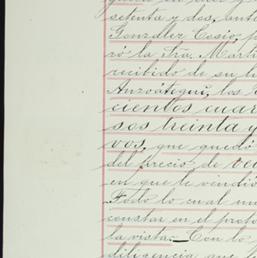 setenta y dos, ante
González Cosio, p
ró la Sra. Marti
recibido de su
Anzoátegui, los
cientos cuar
sos treinta y
vos, que quedó
del precio de
en que le vendió
Todo lo cual
constar en el proto
la vista.—Con lo
diligencia que